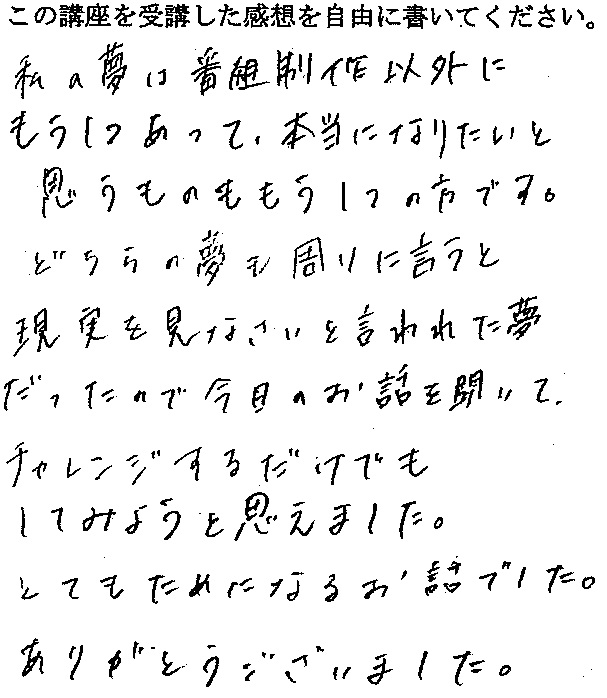 この講座を受講した感想を自由に書いてください。
私の夢は番組制作以外に
もう1つあって、本当になりたいと
思うものももう1つの方です。
どちらの夢も周りに言うと
現実を見なさいと言われた夢
だったので今日のお話を聞いて、
チャレンジするだけでも
してみようと思えました。
とてもためになるお話でした。
ありがとうございました。